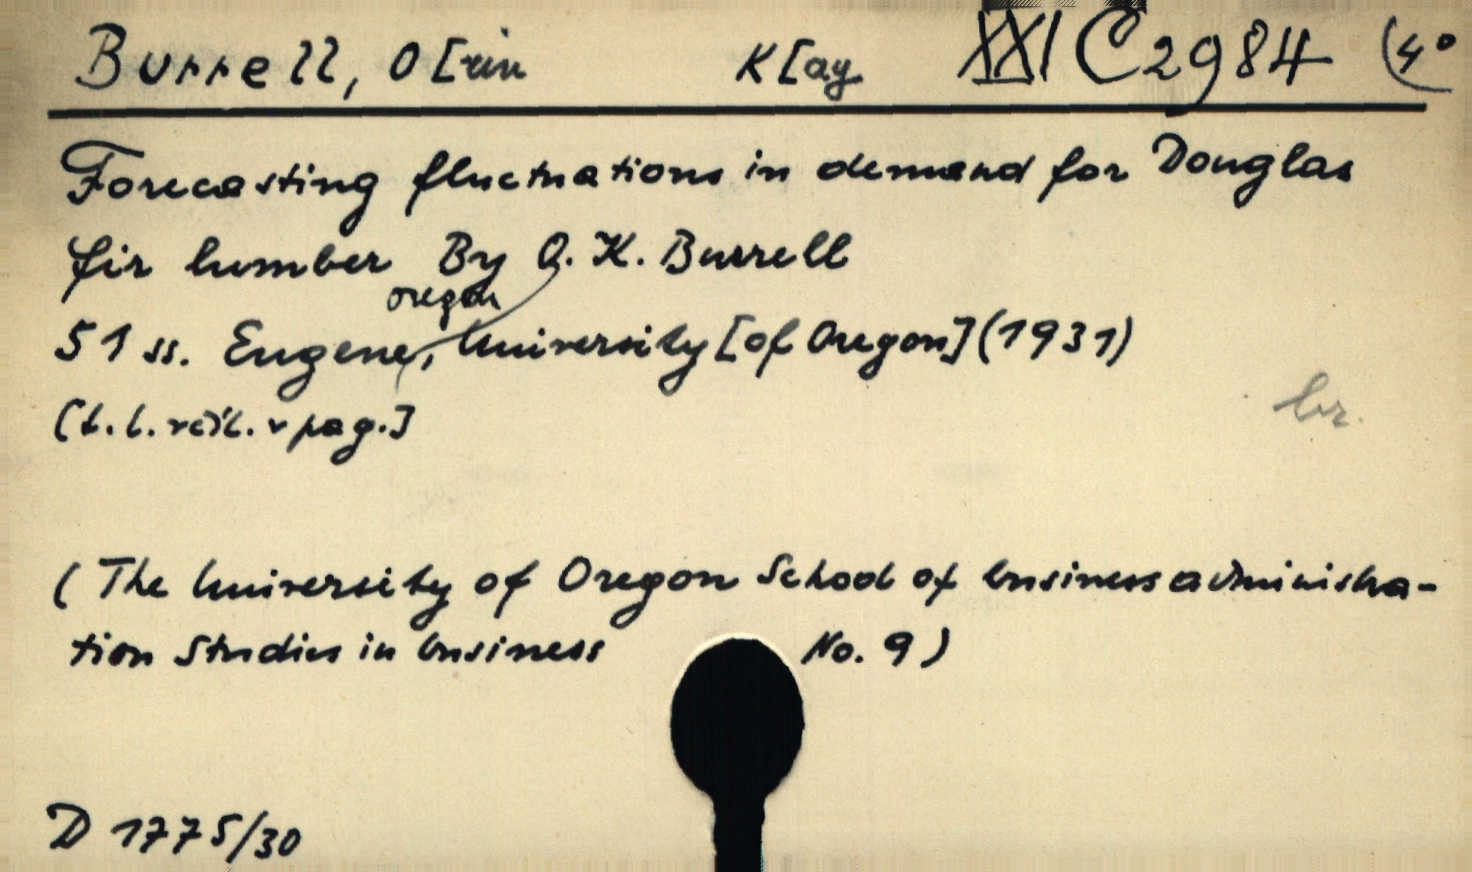 Burrell, O[rin K[ay XXI C 2984 (4°
Forecasting fluctuations in demand for Douglas
fir lumber By O. K. Burrell
oregon
51 ss. Eugene, University [of Oregon] (1931)
br.
(The University of Oregon School of business administra-
tion Studies in business No. 9)
D 1775/30